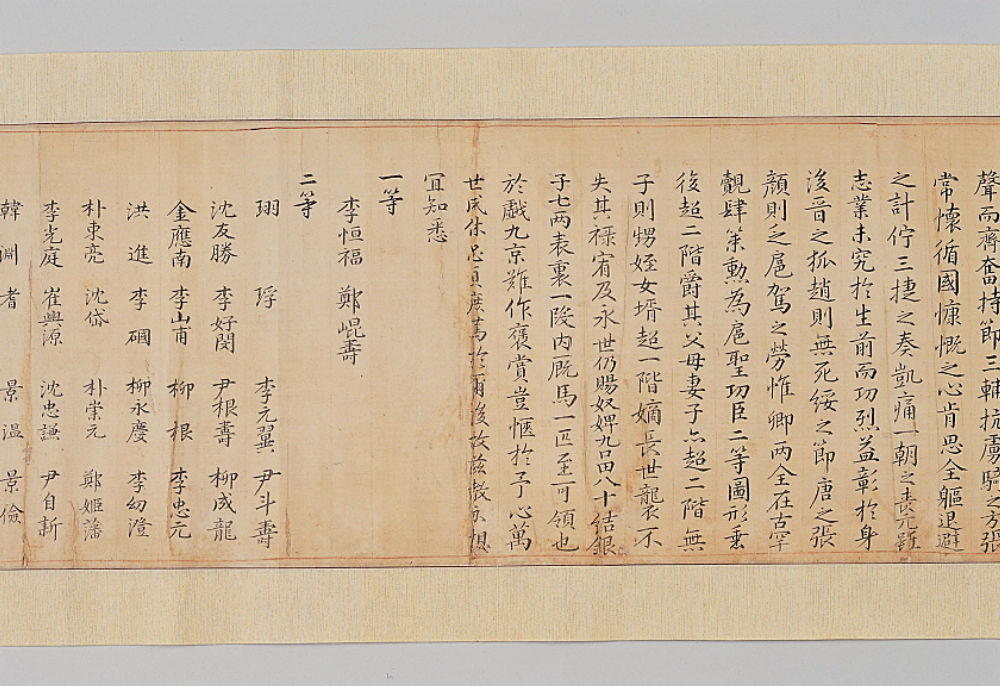 聲而齊奮持節三輔抗虜騎之方張
常懷循國慷慨之心肯思全軀退避
之計佇三捷之奏凱痛一朝之喪元雖
志業未究於生前而功烈益彰於身
後晉之狐趙則無死綏之節唐之張
顔則乏扈駕之勞惟卿兩全在古罕
覩肆策勳為扈聖功臣二等圖形垂
後超二階爵其父母妻子亦超二階無
子則甥姪女壻超一階嫡長世襲不
失其祿宥及永世仍賜奴婢九口田八十結銀
子七兩表裏一段內廐馬一匹至可領也
於戲九京難作褒賞豈愜於予心萬
世咸休忠貞庶篤於爾後故玆敎示想
宜知悉
一等
李恒福 鄭崐壽
二等
珝 琈 李元翼 尹斗壽
沈友勝 李好閔 尹根壽 柳成龍
金應南 李山甫 柳根 李忠元
洪進 李𥕏 柳永慶 李幼澄
朴東亮 沈岱 朴崇元 鄭姬藩
李光庭 崔興源 沈忠謙 尹自新
韓淵 耆 景溫 景儉